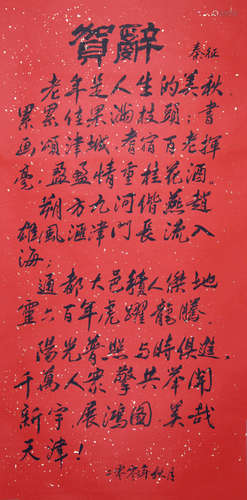 賀辭
秦征
老年是人生的美秋
累累佳果滿枝頭；書
画頌津城，耆宿百老揮
毫，盈盈情重桂花酒。
朔方九河偕燕趙
雄風，酒津門長流入
海；
通都大邑積人傑地
靈六百年虎躍龍騰。
陽光普照與時俱進，
千萬人衆擎共举開
新宇，展鴻圖，美哉
天津！
二零零年秋月